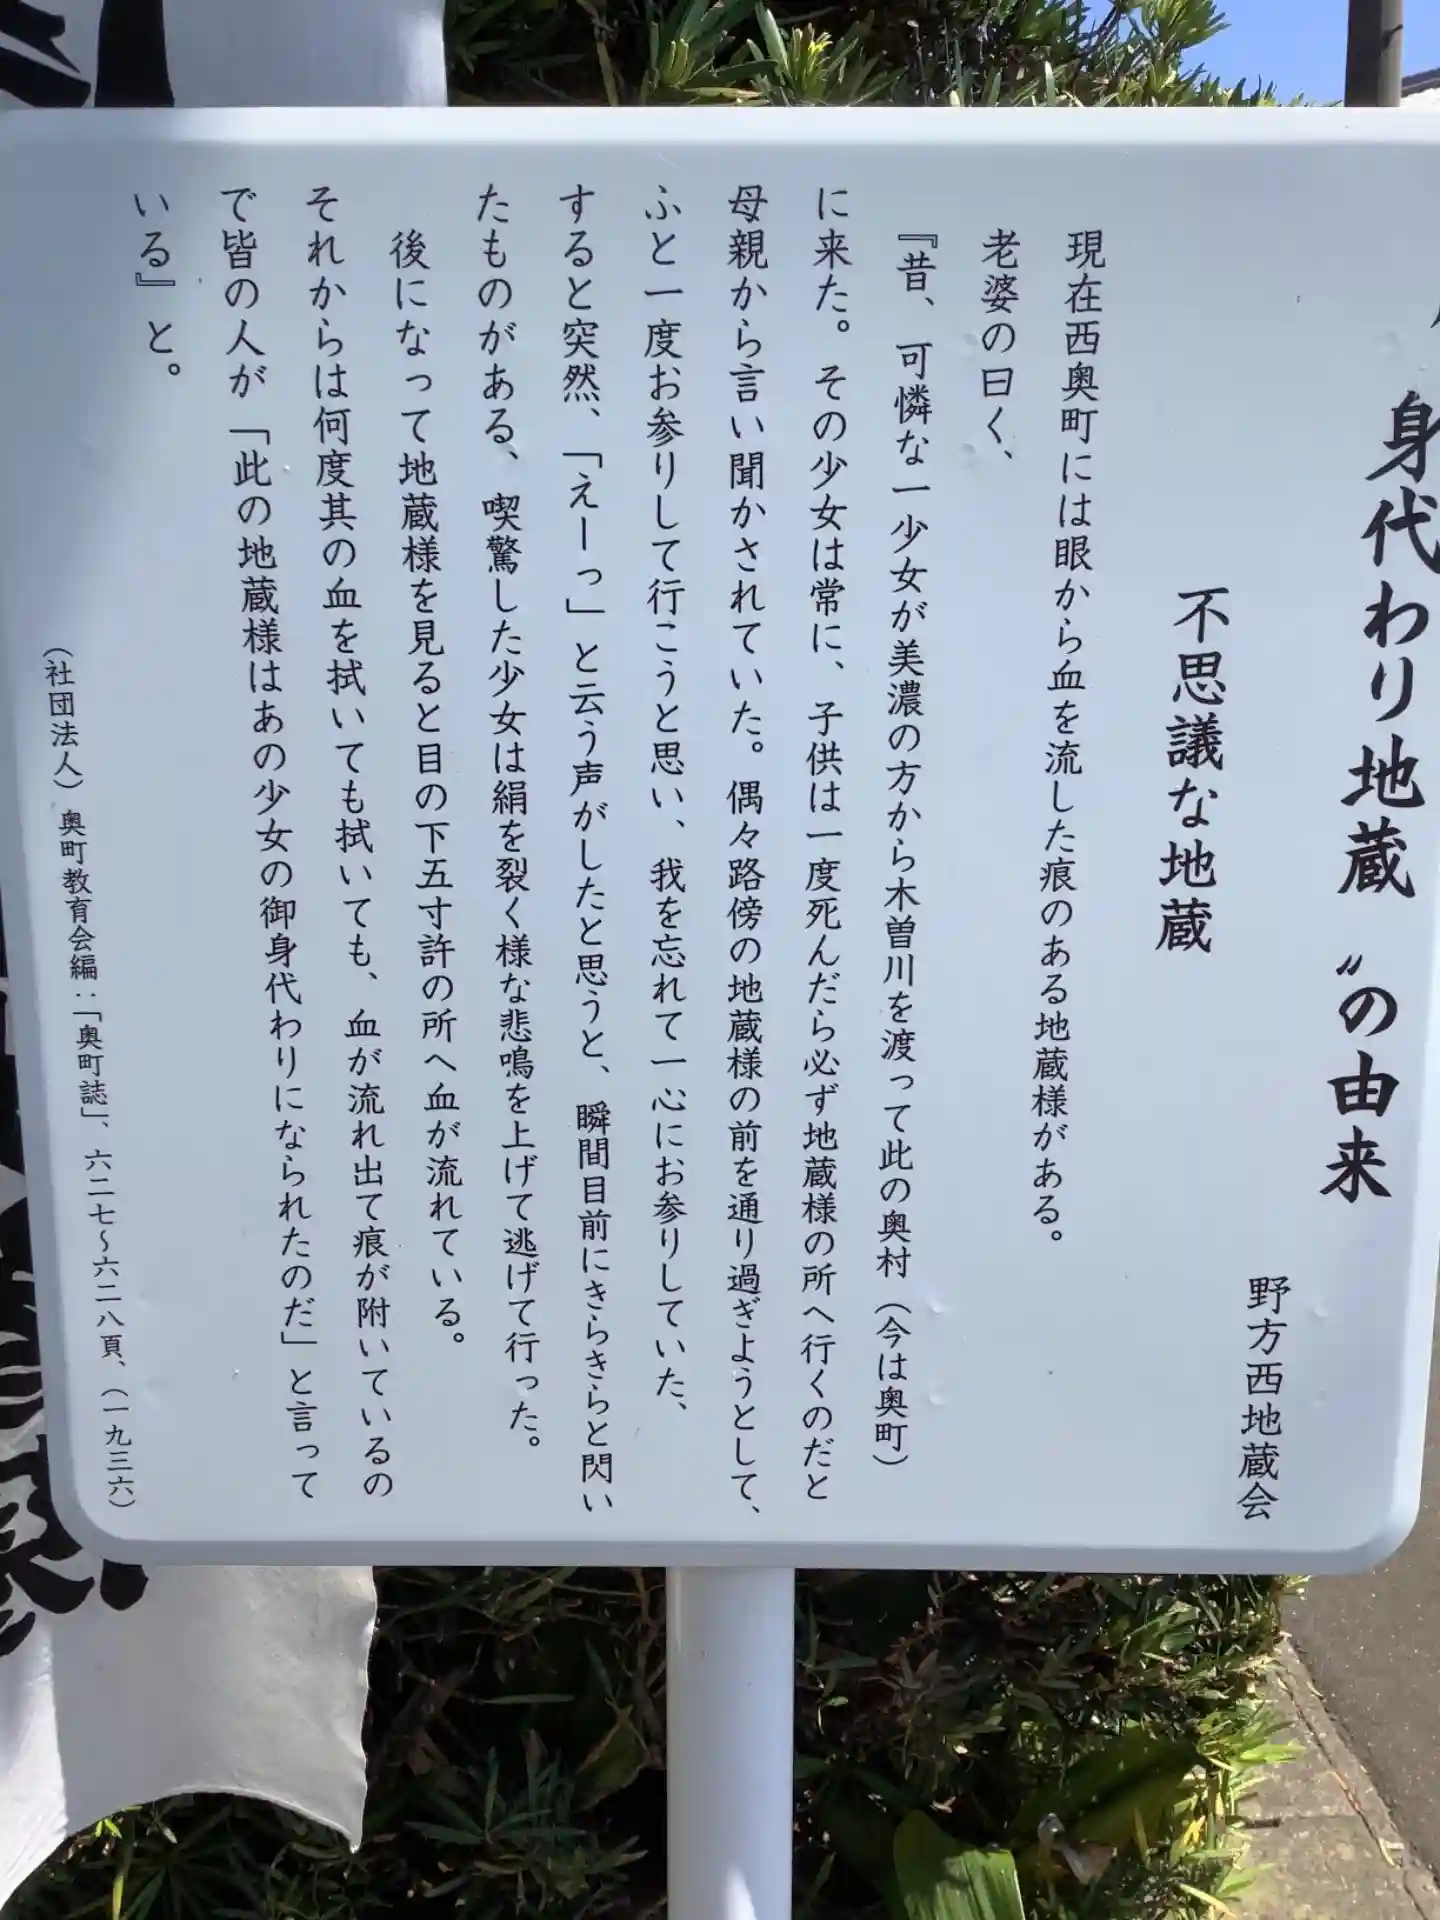 身代わり地蔵〟の由来
野方西地蔵会
不思議な地蔵
現在西奥町には眼から血を流した痕のある地蔵様がある。
老婆の曰く、
『昔、可憐な一少女が美濃の方から木曽川を渡って此の奥村(今は奥町)
に来た。その少女は常に、子供は一度死んだら必ず地蔵様の所へ行くのだと
母親から言い聞かされていた。偶々路傍の地蔵様の前を通り過ぎようとして、
ふと一度お参りして行こうと思い、我を忘れて一心にお参りしていた、
すると突然、「えーっ」と云う声がしたと思うと、瞬間目前にきらきらと閃い
たものがある、喫驚した少女は絹を裂く様な悲鳴を上げて逃げて行った。
後になって地蔵様を見ると目の下五寸許の所へ血が流れている。
それからは何度其の血を拭いても拭いても、血が流れ出て痕が附いているの
で皆の人が「此の地蔵様はあの少女の御身代わりになられたのだ」と言って
いる』と。
(社団法人)奥町教育会編:「奥町誌」、六二七~六二八頁、(一九三六)